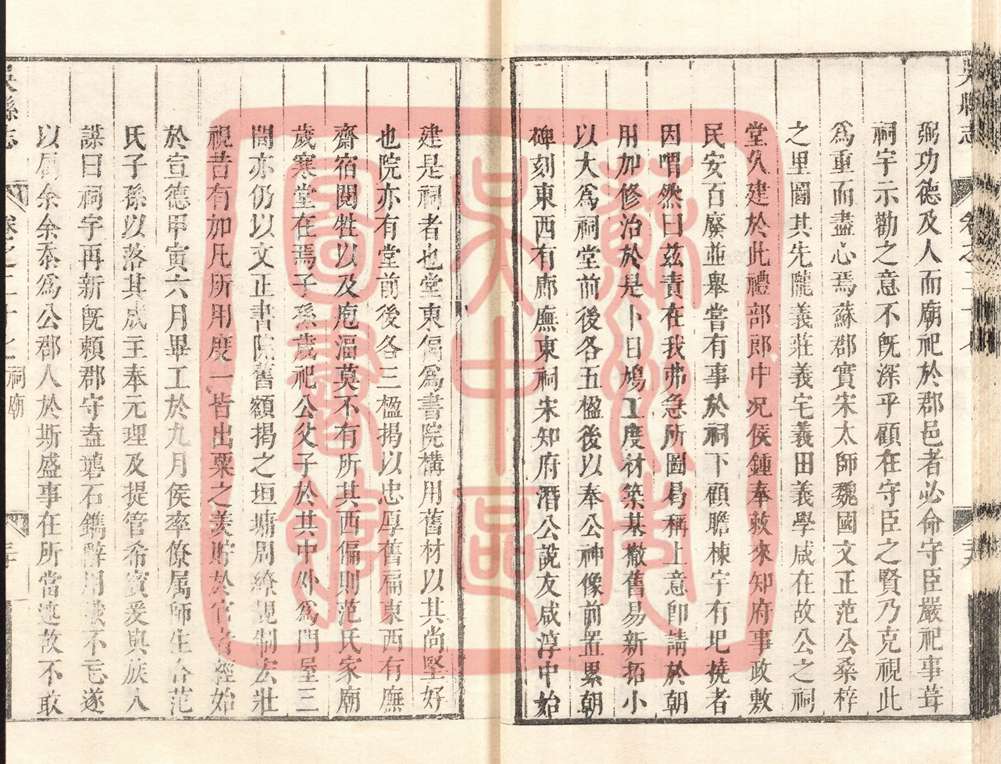 吳縣志
卷之二十九
三六
弼功德及人而廟祀於郡邑者必命守臣嚴祀事葺
祠宇示勸之意不旣深乎顧在守臣之賢乃克視此
為重而盡心焉蘇郡實宋太師魏國文正范公桑梓
之里國其先隴義莊義宅義田義學咸在故公之祠
堂久建於此禮部郎中况侯鍾奉敕來知府事政敷
民安百廢並舉嘗有事於祠下顧瞻棟宇有圯撓者
因喟然曰茲責在我弗急所圖曷稱上意即請於朝
用加修治於是卜日鳩工度材築基撤舊易新拓小
以大爲祠堂前後各五楹後以奉公神像前置累朝
碑刻東西有廊廡東祠宋知府潛公說友咸淳中始
建是祠者也堂東偏爲書院構用舊材以其尚堅好
也院亦有堂前後各三楹揭以忠厚舊扁東西有廡
齋宿閱牲以及庖湢莫不有所其西偏則范氏家廟
歲寒堂在焉子孫歲祀公父子於其中外爲門屋三
間亦仍以文正書院舊額揭之垣墉周繚規制宏壯
視昔有加凡所用度一皆出粟之羨貯於官者經始
於宣德甲寅六月畢工於九月侯率僚属師生合范
氏子孫以落其成主奉元理及提管希賓爰與族人
謀曰祠宇再新旣頼郡守盍礲石鐫辭用
不
遂
以属余余忝爲公郡人於斯盛事在所當述故不敢
吳縣志
卷之二十九
祠廟
蘇州市吳中區圖書館